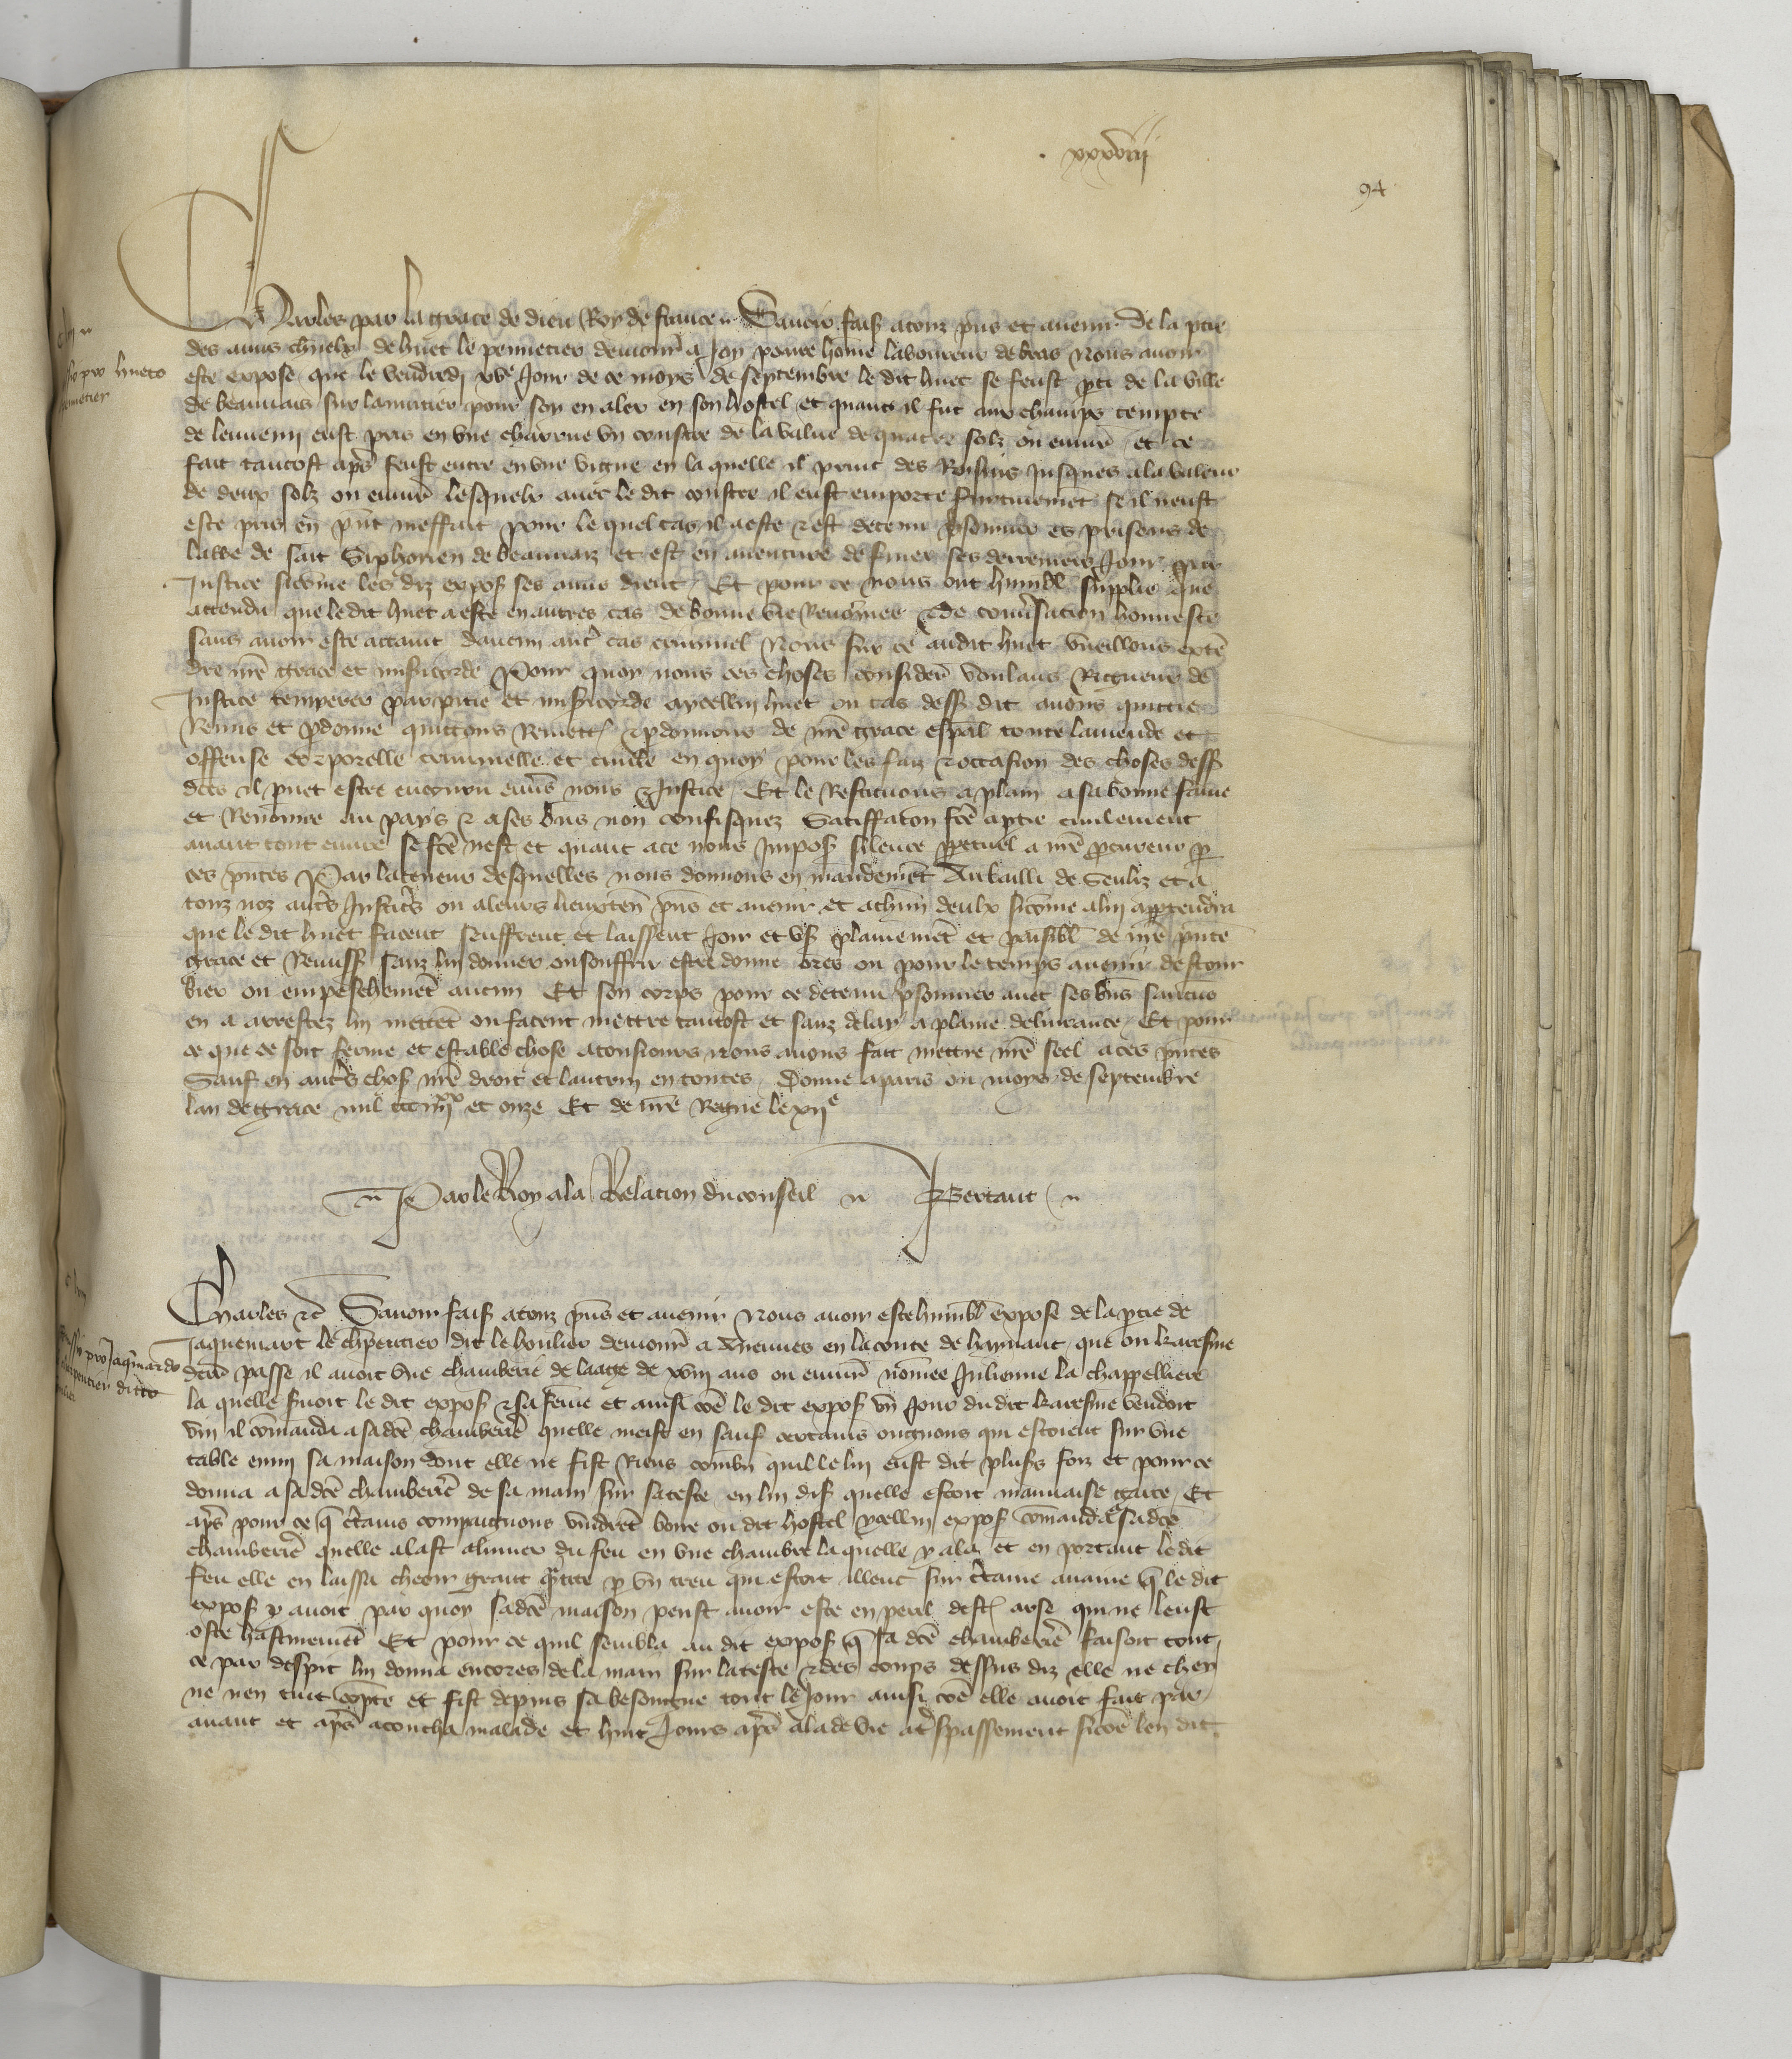 xxxviii
94
Charles par la grace de dieu Roy de france Savoir fais a touz pns et avenir de la ptie
des amis chnelx de huet le pennetier demour a Joy povre home laboureur de bras Nous avoir
este expose que le vendredi xve Jour de ce moys de septembre le dit huet se feust pti de la ville
de beauvais sur lanuitier pour soy en aler en son hostel et quant il fut aux champs tempte
de lennemi eust pris en une charrue un coustre de la value de quatre solz ou envir et ce
fait tantost aps feust entre en une vigne en la quelle il print des Roisins Jusques a la valeur
de deux solz ou envir lesquelx avec le dit coustre il eust emporte furtivemet se il neust
este pris en pnt meffait pour le quel cas il a este & est detenu psonnier es prisons de
labbe de sait Siphorien de beauvaiz et est en aventure de finer ses derreniers Jours par
Justice sicome les diz expos ses amis dient Et pour ce nous ont humbl supplie que
attendu que le dit huet a este en autres cas de bonne vie Renomee & de conversation honneste
sans avoir este attaint daucun autre cas criminel Nous sur ce audit huet vueillons exte
dre nre grace et misicorde Pour quoy nous ces choses consider voulans Rigueur de
Justice temperer par pitie et misicorde a ycellui huet ou cas dess dit avons quittie
Remis et pdonne quittons Remett & pdonnons de nre grace espal toute lamende et
offense corporelle criminelle et civile en quoy pour les faiz & occasion des choses dess
dces il puet estre encouru envs nous & Justice Et le Restituons a plain a sa bonne fame
et Renomee au pays & a ses bns non confisquez Satiffacon fce a ptie civilement
avant tout euvre se fce nest et quant a ce nous Impos silence ppetuel a nre pcureur p
ces pntes Par la teneur desquelles nous donnons en mandemet Au bailli de Senliz et a
touz noz autres Justiciers ou a leurs lieuxten pns et avenir et a chun deulx sicome a lui appartendra
que le dit huet facent seuffrent et laissent Joir et us plainemet et paisibl de nre pnte
grace et Remiss sanz lui donner ou souffrir estre donne ores ou pour le temps avenir destour
bier ou empeschemet aucun Et son corps pour ce detenu psonnier avec ses bns saucuns
en a arrestez lui mettet ou facent mettre tantost et sanz delay a plaine delivrance Et pour
ce que ce soit ferme et estable chose a tousiours nous avons fait mettre nre seel a ces pntes
Sauf en autres chos nre droit et lautrui en toutes Donne a paris ou moys de septembre
lan de grace mil ccc iiiixx et onze Et de nre Regne le xiie
Par le Roy a la Relation du conseil Bertaut
Charles &c Savoir fais a touz pns et avenir Nous avoir este humbl expose de la ptie de
Jaquemart le chpentier dit le houlier demour a en la conte de haynaut que ou karesme
derr passe il avoit une chamberie de laage de xviii ans ou envir nomee Julienne la chappelliere
la quelle suoit le dit expos & sa feme et ainsi coe le dit expos un Jour du dit karesme vendoit
vin il comanda a sa dce chamberie quelle meist en sauf certains ongnons qui estoient sur une
table enmi sa maison dont elle ne fist Riens combn quil le lui eust dit pluss foiz et pour ce
donna a sa dce chamberie de sa main sur sa teste en lui dis quelle estoit mauvaise garce Et
aps pour ce q ctains compaignons vindret boire ou dit hostel ycellui expos comanda a sa dce
chamberie quelle alast alumer du feu en une chambre la quelle y ala et en portant le dit
feu elle en laissa cheoir grant qtite p un treu qui estoit illeuc sur ctaine avaine q le dit
expos y avoit par quoy sa dce maison peust avoir este en peril dest arse qui ne leust
oste hastivemet Et pour ce quil sembla au dit expos q sa dce chamberie faisoit tout
ce par despit lui donna encores de la main sur la teste & des coups dessus diz elle ne chey
ne nen tint copte et fist depuis sa besongne tout le Jour ainsi coe elle avoit fait par
avant et aps acoucha malade et huit Jours aps ala de vie a tspassement sicoe len dit